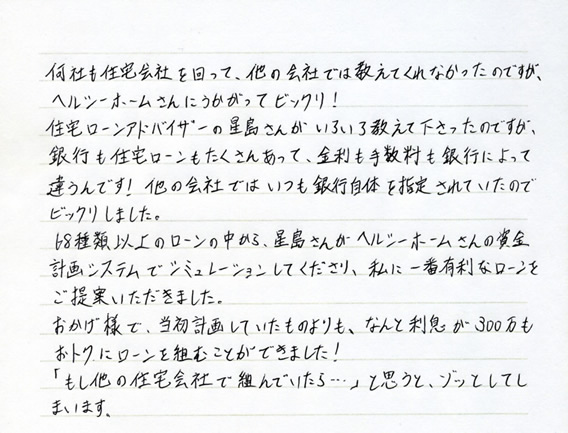 何社も住宅会社を回って、他の会社では教えてくれなかったのですが、
ヘルシーホームさんにうかがってビックリ！
住宅ローンアドバイザーの星島さんがいろいろ教えて下さったのですが、
銀行も住宅ローンもたくさんあって、金利も手数料も銀行によって
違うんです！他の会社ではいつも銀行自体を指定されていたので
ビックリしました。
68種類以上のローンの中から、星島さんがヘルシーホームさんの資金
計画システムでシミュレーションしてくださり、私に一番有利なローンを
ご提案いただきました。
おかげ様で、当初計画していたものよりも、なんと利息が300万も
おトクにローンを組むことができました！
「もし他の住宅会社で組んでいたら…」と思うと、ゾッとしてし
まいます。